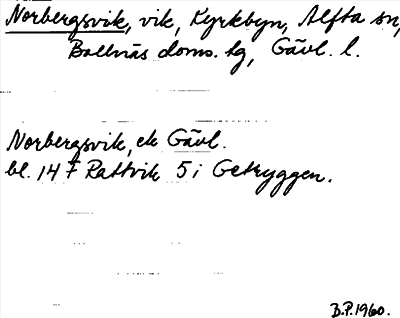 Norbergsvik, vik, Kyrkbyn, Alfta sn,
Bollnäs doms. hg, Gävl. l.
Norbergsvik, ek Gävl.
bl. 147 Rättvik 5 i Getryggen.
B.P. 1960.